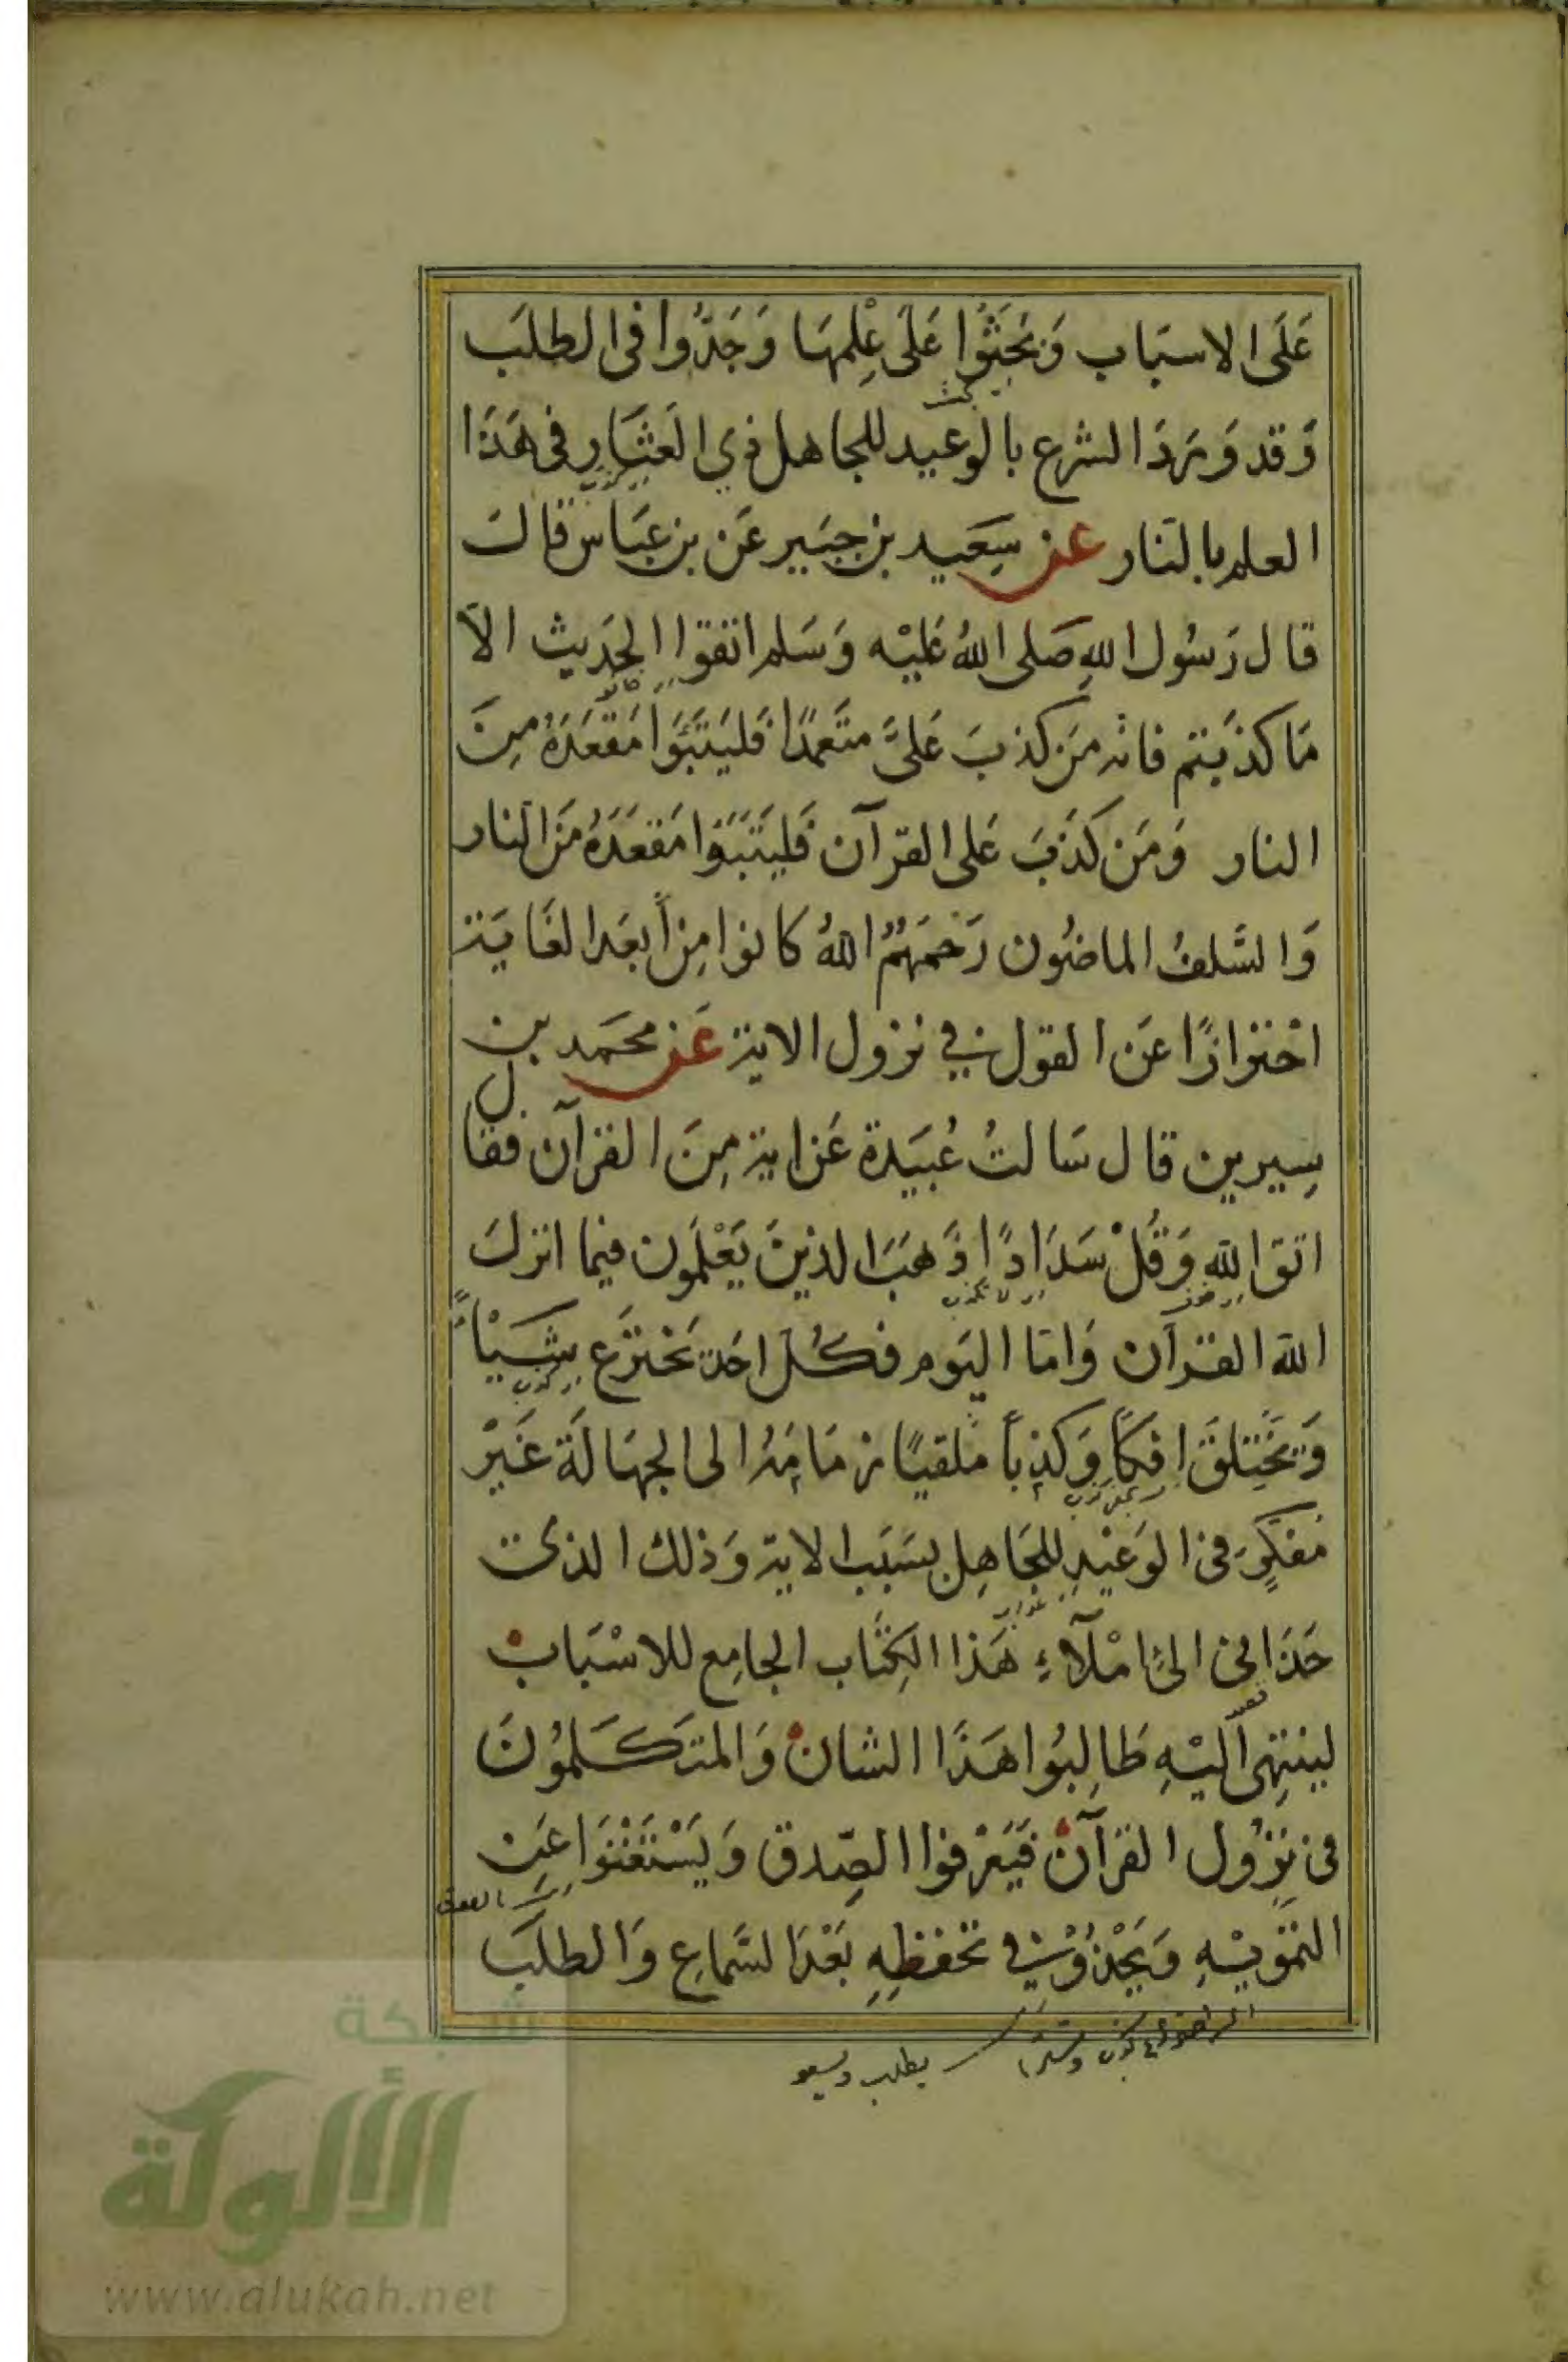 عَلَى الاسبَاب وَبَحَثُوا عَلَى عِلْمِهَا وَجَدُّوا في الطلَب
وَقد وَرَدَ الشرع بالوعيد للجاهل ذي العَثِار في هَذا
العلم بالنار عن سَعيد بن جبَير عَن بن عبَاس قال
قال رَسُول اللهِ صَلى اللهُ عَليْه وَسَلم اتقوا الحَديث الا
مَا كذبتم فانه مَن كذبَ عَلىَّ متعَمدًا فَليَتبَوَأ مَقعَدَهُ مِنَ
النار وَمَن كَذَبَ عَلى القرآن فَليَتَبَوا مَقعَدَهُ مَن النار
وَالسَّلفُ الماضُون رَحمَهُمُ اللهُ كانوا مِن أبعَد الغَايَة
احْترازًا عَن القول في نزول الاية عَن محمَد بن
سِيرين قال سَالتُ عُبَيدة عَن اية مِنَ القرآن فقال
اتق الله وَقُلْ سَدَادًا ذَهَبَ الذينَ يَعْلمُون فيما انزلَ
الله القرآن وَامّا اليَوم فكُل احَد يَخترَع شَيْأً
وَيَختِلقَ افكاً وَكذباً ملقيًا زمَامَه الى الجهَالَة غَيْر
مفكرٍ في الوَعيْدِ للجَاهِل بسَبَب الاية وَذلك الذى
حَدَانى الى امْلآءِ هَذا الكِتَاب الجامِع للاسْبَاب
لينتِهى اليْهِ طَالِبُوا هَذَا الشان وَالمتَكَلمُونَ
فى نزُول القرآن فَيَعْرفوا الصِّدق وَيَسْتَغْنَوا عَن
التمويْهِ وَيَجدُّوْا في تحْفظِهِ بَعْدَ السَّماعِ وَالطلَب
يطلب
شبكة
الألوكة
www.alukah.net